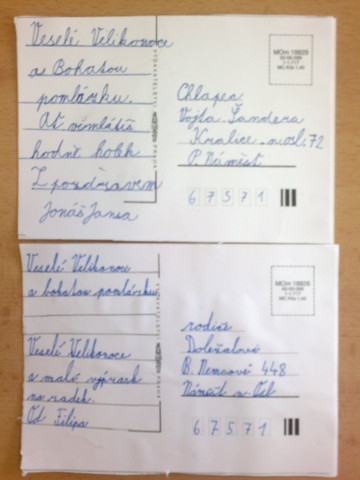 Veselé Velikonoce
a Bohatou
pomlázku.
Ať vimlátíš
hodně holek
Z pozdravem
Jonáš Jansa
MOm 18826
Chlapec
Vojta Šandera
Kralice n. osl. 72
P. Náměšť
6 7 5 7 1
Veselé Velikonoce
a bohatou pomlázku
Veselé Velikonoce
a malý výprask
na zadek.
Od Filipa
MOm 18826
rodina
Doležalovi
B. Nemcové 448
Náměšť n. Osl
6 7 5 7 1